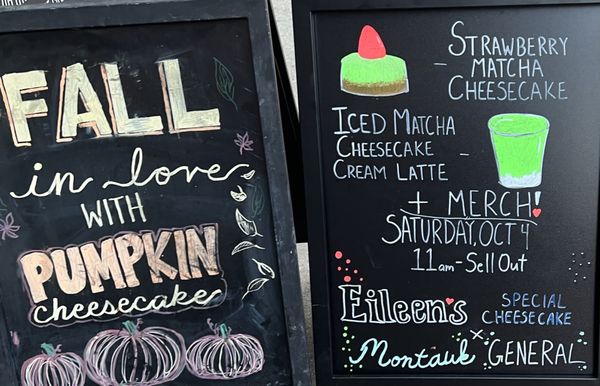 FALL
in love
WITH
PUMPKIN
cheesecake
STRAWBERRY
MATCHA
CHEESECAKE
ICED MATCHA
CHEESECAKE
CREAM LATTE
+ MERCH!
SATURDAY, OCT 4
11am-Sell Out
Eileen's
SPECIAL
CHEESECAKE
×
Montauk GENERAL